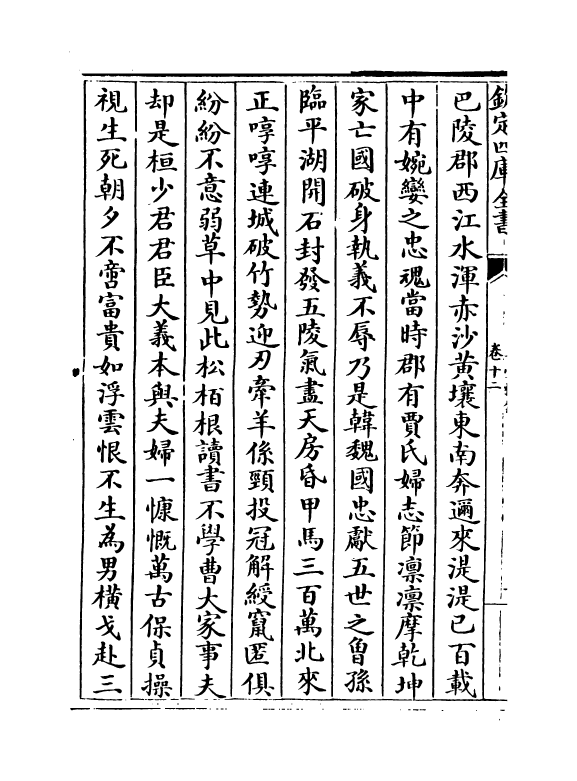 欽定四庫全書
卷十二
巴陵郡西江水渾赤沙黃壤東南奔邇來湜湜已百載
中有婉孌之忠魂當時郡有賈氏婦志節凛凛摩乾坤
家亡國破身執義不辱乃是韓魏國忠獻五世之曾孫
臨平湖開石封發五陵氣盡天房昏甲馬三百萬北來
正啍啍連城破竹勢迎刃牽羊係頸投冠解綬竄匿俱
紛紛不意弱草中見此松栢根讀書不學曹大家事夫
却是桓少君君臣大義本與夫婦一慷慨萬古保貞操
視生死朝夕不啻富貴如浮雲恨不生為男橫戈赴三